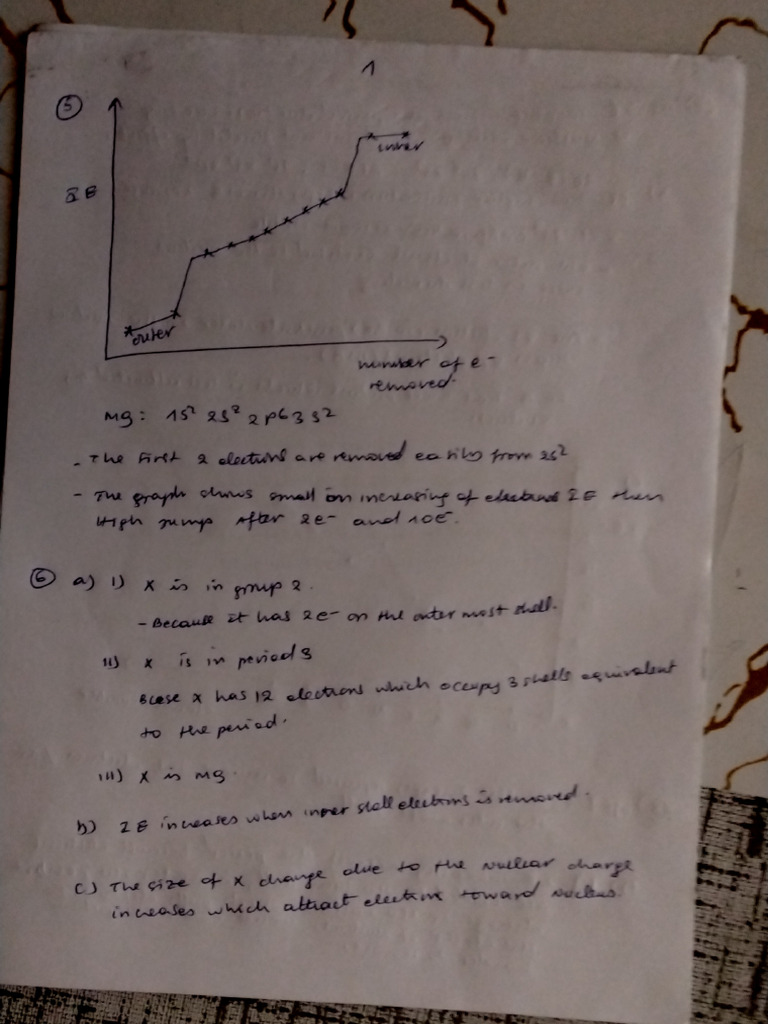 1
5
IE
inner
outer
number of e-
removed.
Mg: 1s² 2s² 2p6 3s²
- The first 2 electrons are removed easily from 2s²
- The graph shows small on increasing of electrons IE then
High jump After 2e- and 10e-.
6 a) i) X is in group 2.
- Because it has 2e- on the outer most shell.
ii) X is in period 3
X has 12 electrons which occupy 3 shells equivalent
to the period.
iii) X is Mg.
b) IE increases when inner shell electrons is removed.
c) The size of X change due to the nuclear charge
increases which attract electrons toward nucleus.